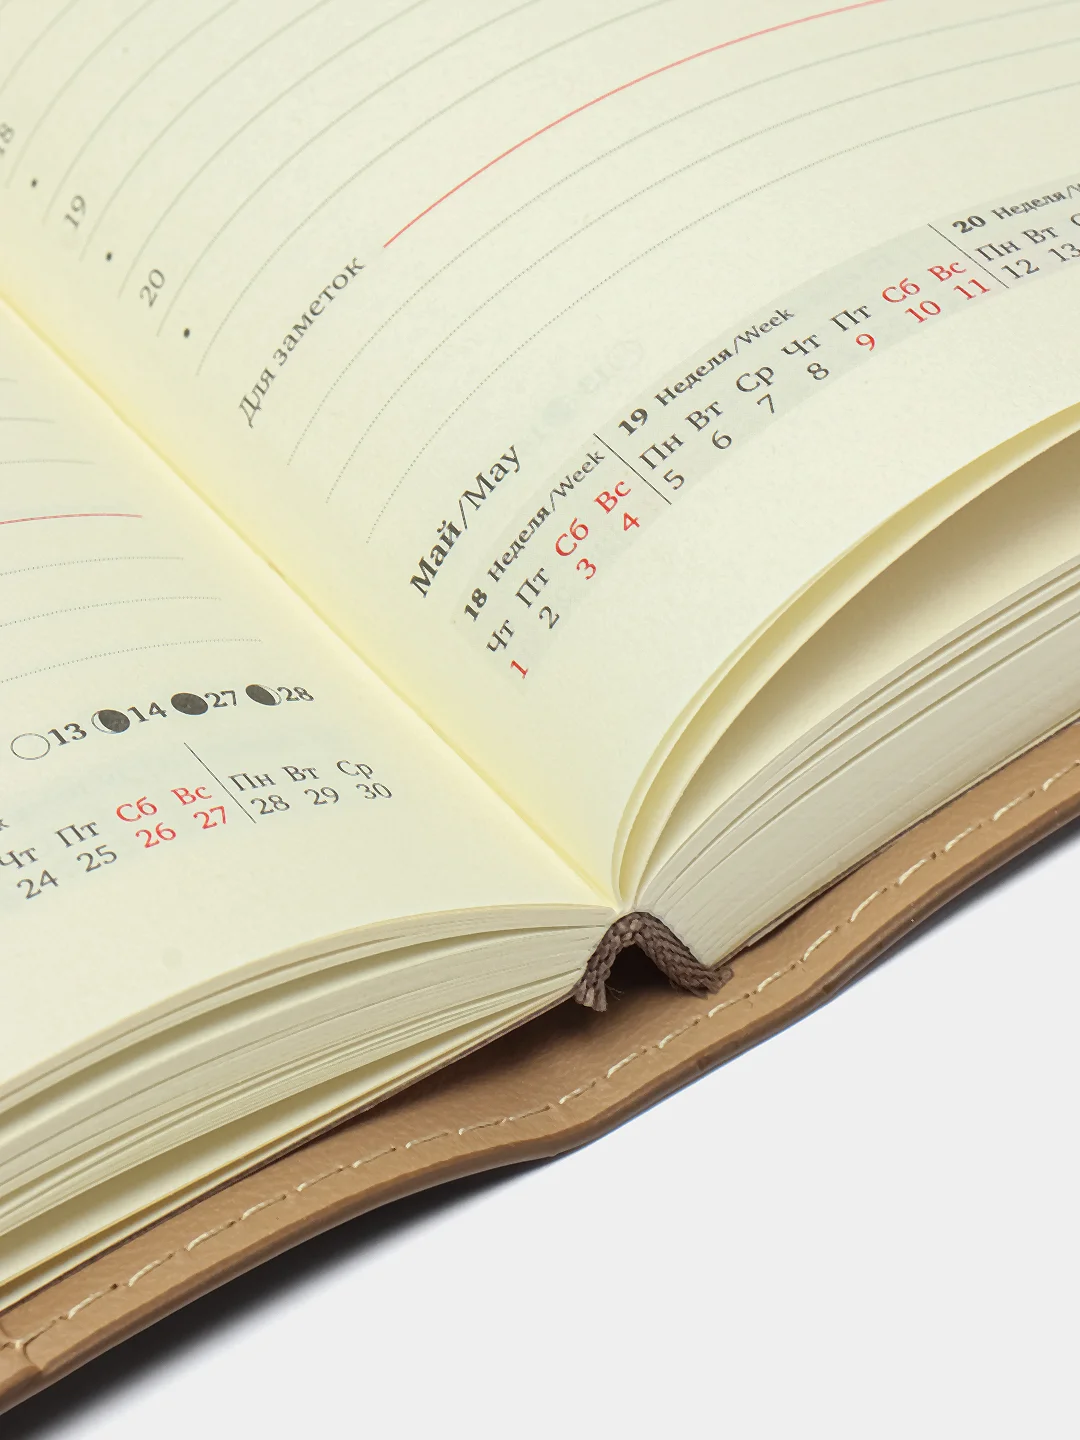 13 14 27 28
Чт Пт Сб Вс Пн Вт Ср
24 25 26 27 28 29 30
18
19
20
Для заметок
Май/May
18 Неделя/Week 19 Неделя/Week 20 Неделя/
Чт Пт Сб Вс Пн Вт Ср Чт Пт Сб Вс Пн Вт
1 2 3 4 5 6 7 8 9 10 11 12 13